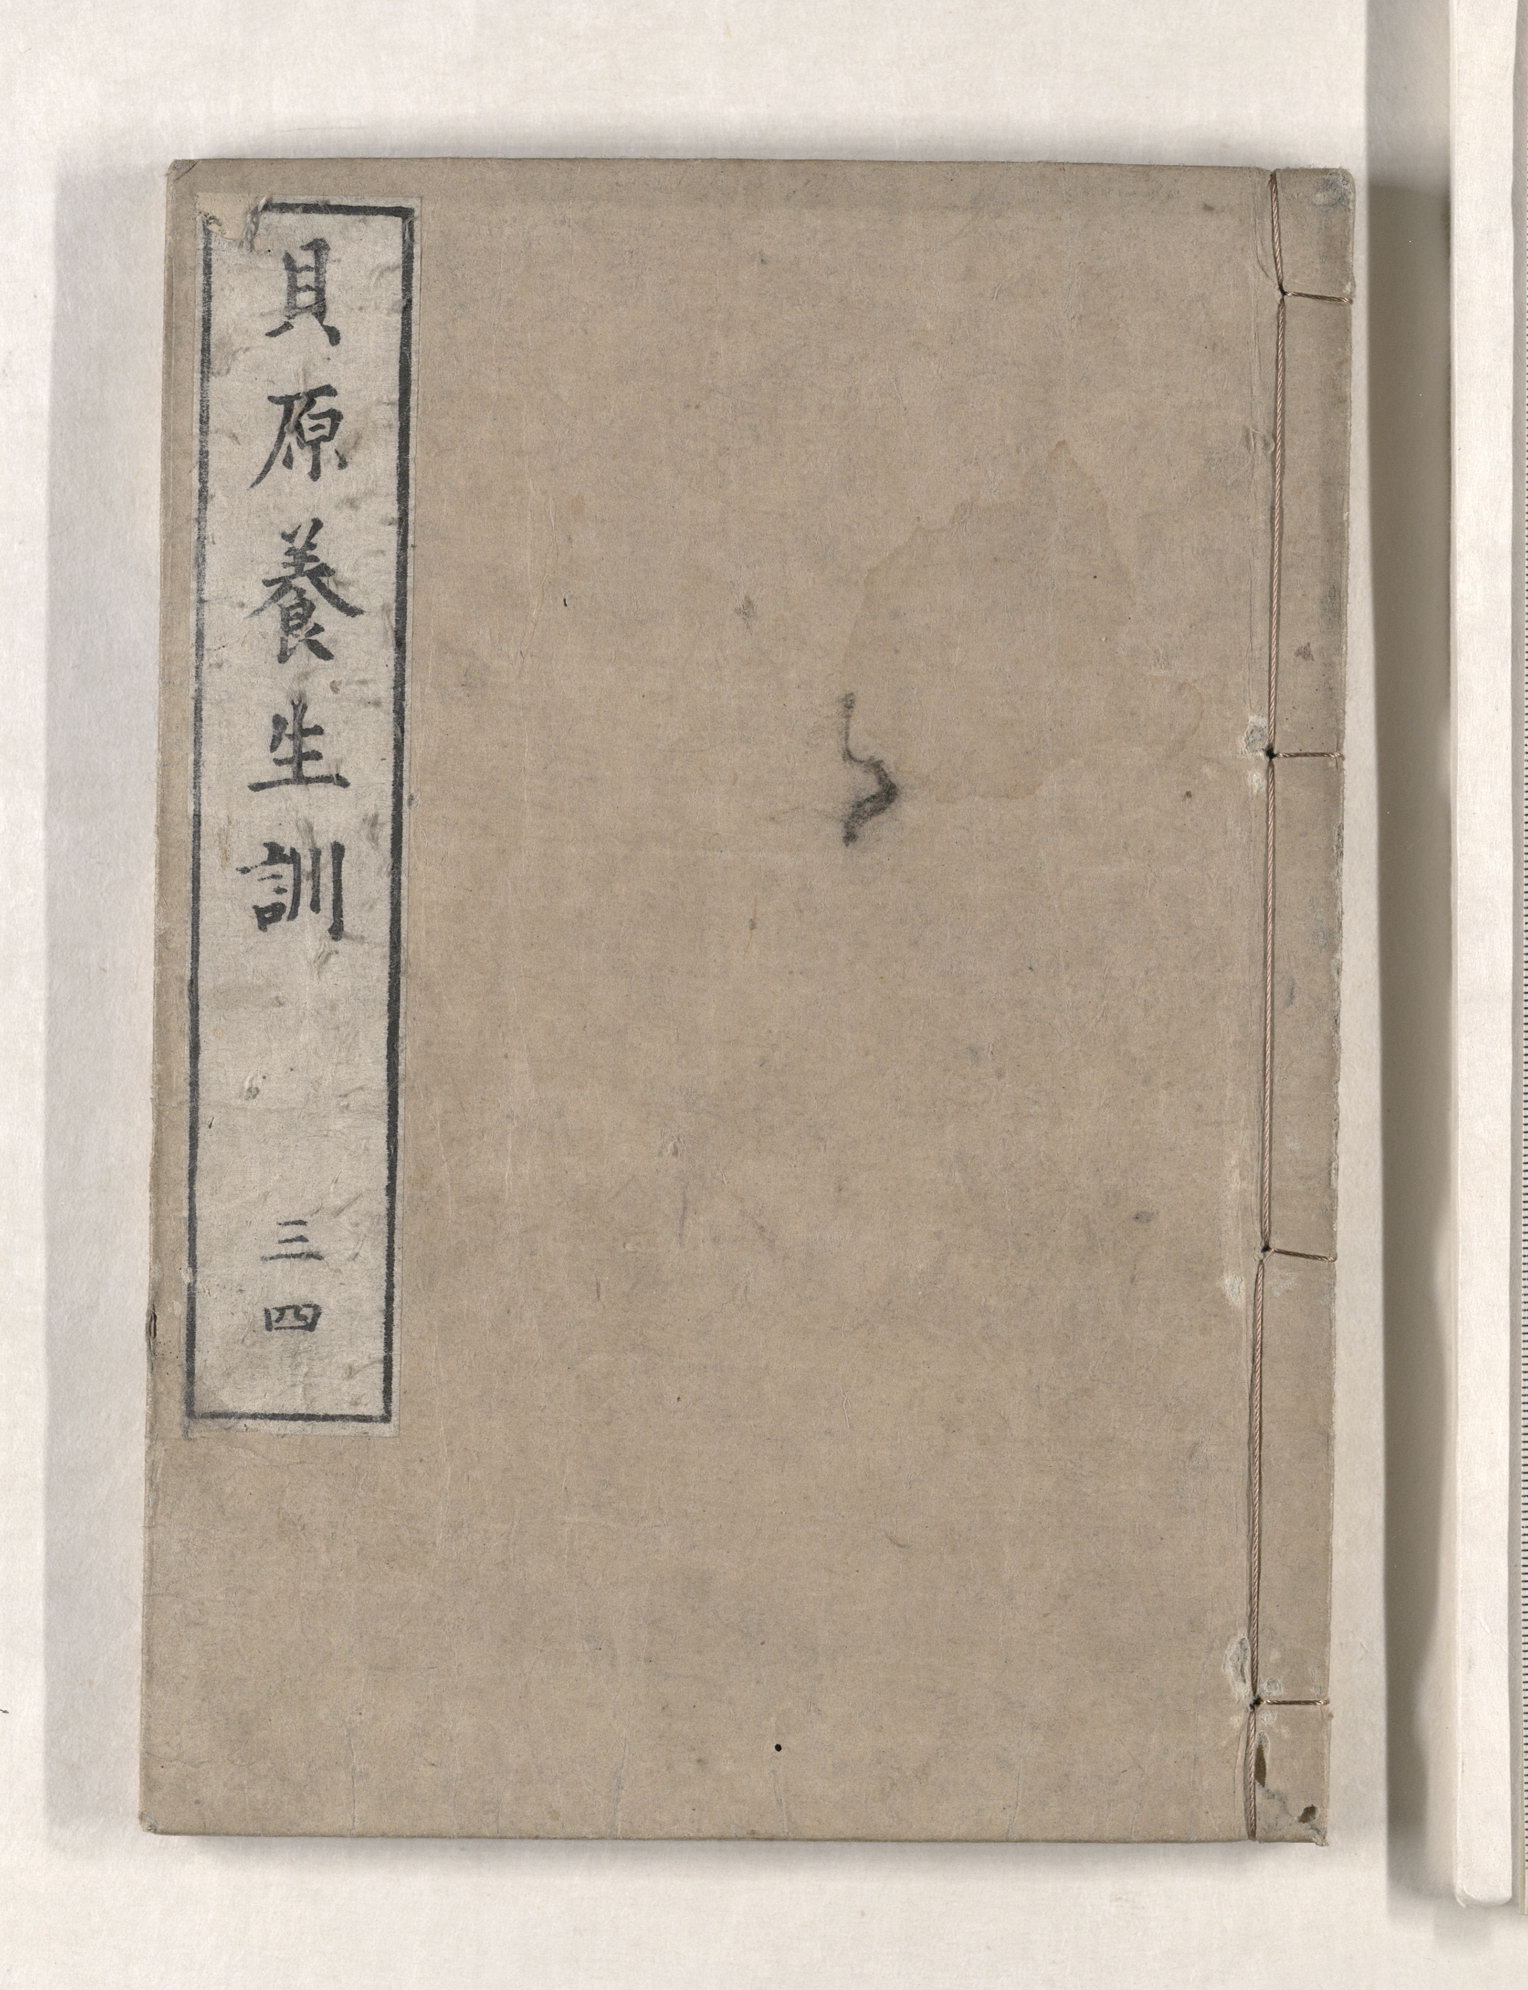 貝原養生訓 三四